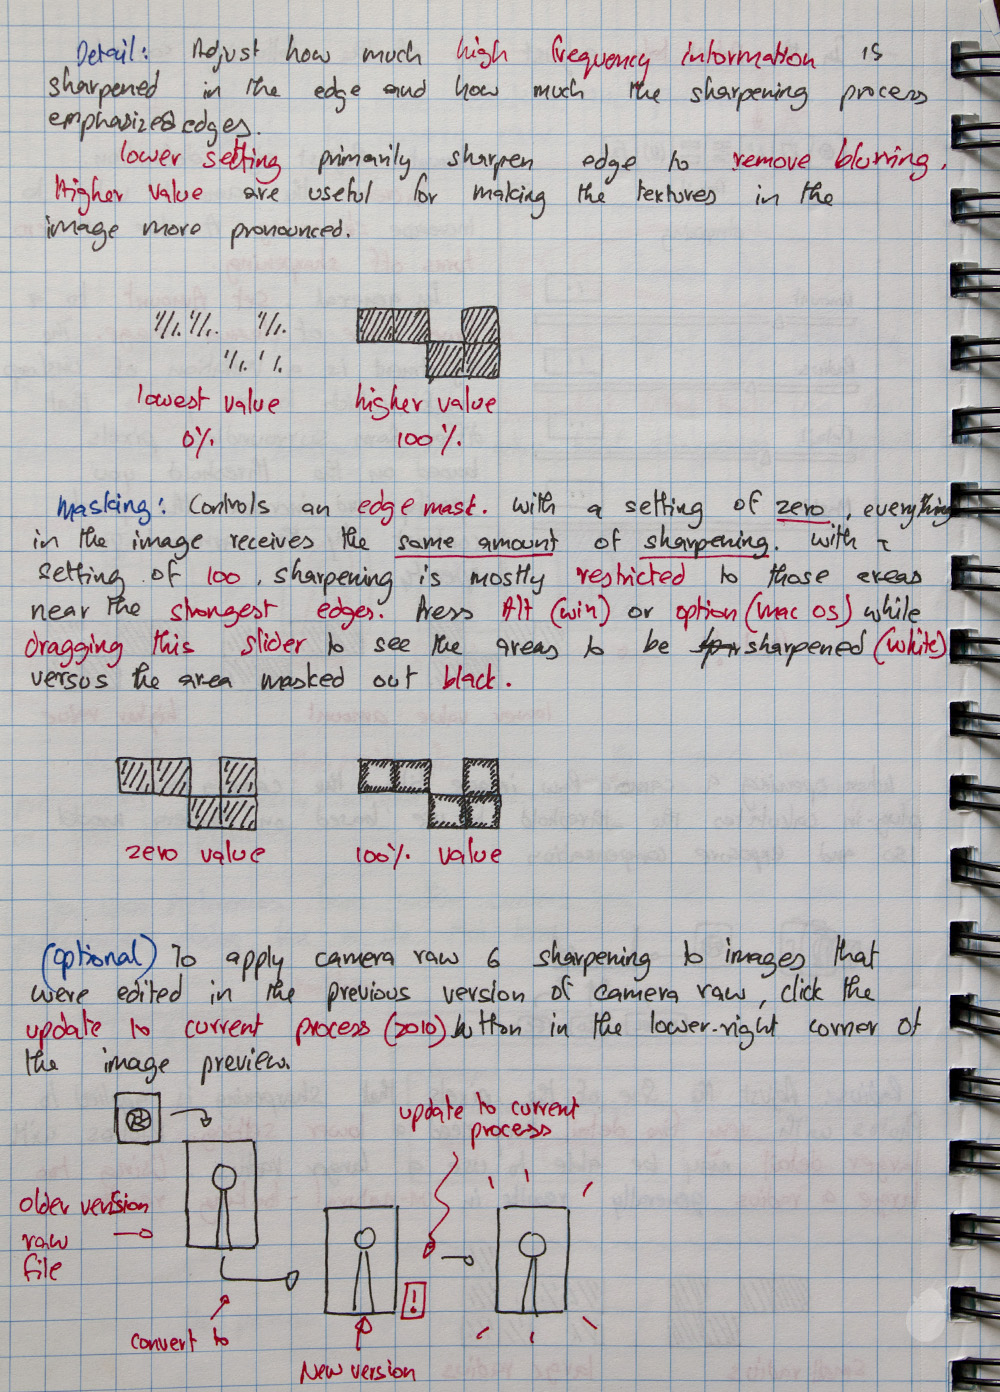 Detail: Adjust how much high frequency information is
sharpened in the edge and how much the sharpening process
emphasizes edges.
lower setting primarily sharpen edge to remove blurring.
Higher value are useful for making the textures in the
image more pronounced.
lowest value
0%
higher value
100%
Masking: Controls an edge mask. With a setting of zero, everything
in the image receives the same amount of sharpening. With a
setting of 100, sharpening is mostly restricted to those areas
near the strongest edges. Press Alt (win) or option (mac os) while
dragging this slider to see the areas to be sharpened (white)
versus the area masked out black.
zero value
100% value
(optional) To apply camera raw 6 sharpening to images that
were edited in the previous version of camera raw, click the
update to current process (2010) button in the lower-right corner of
the image preview.
update to current
process
older version
raw
file
!
convert to
New version